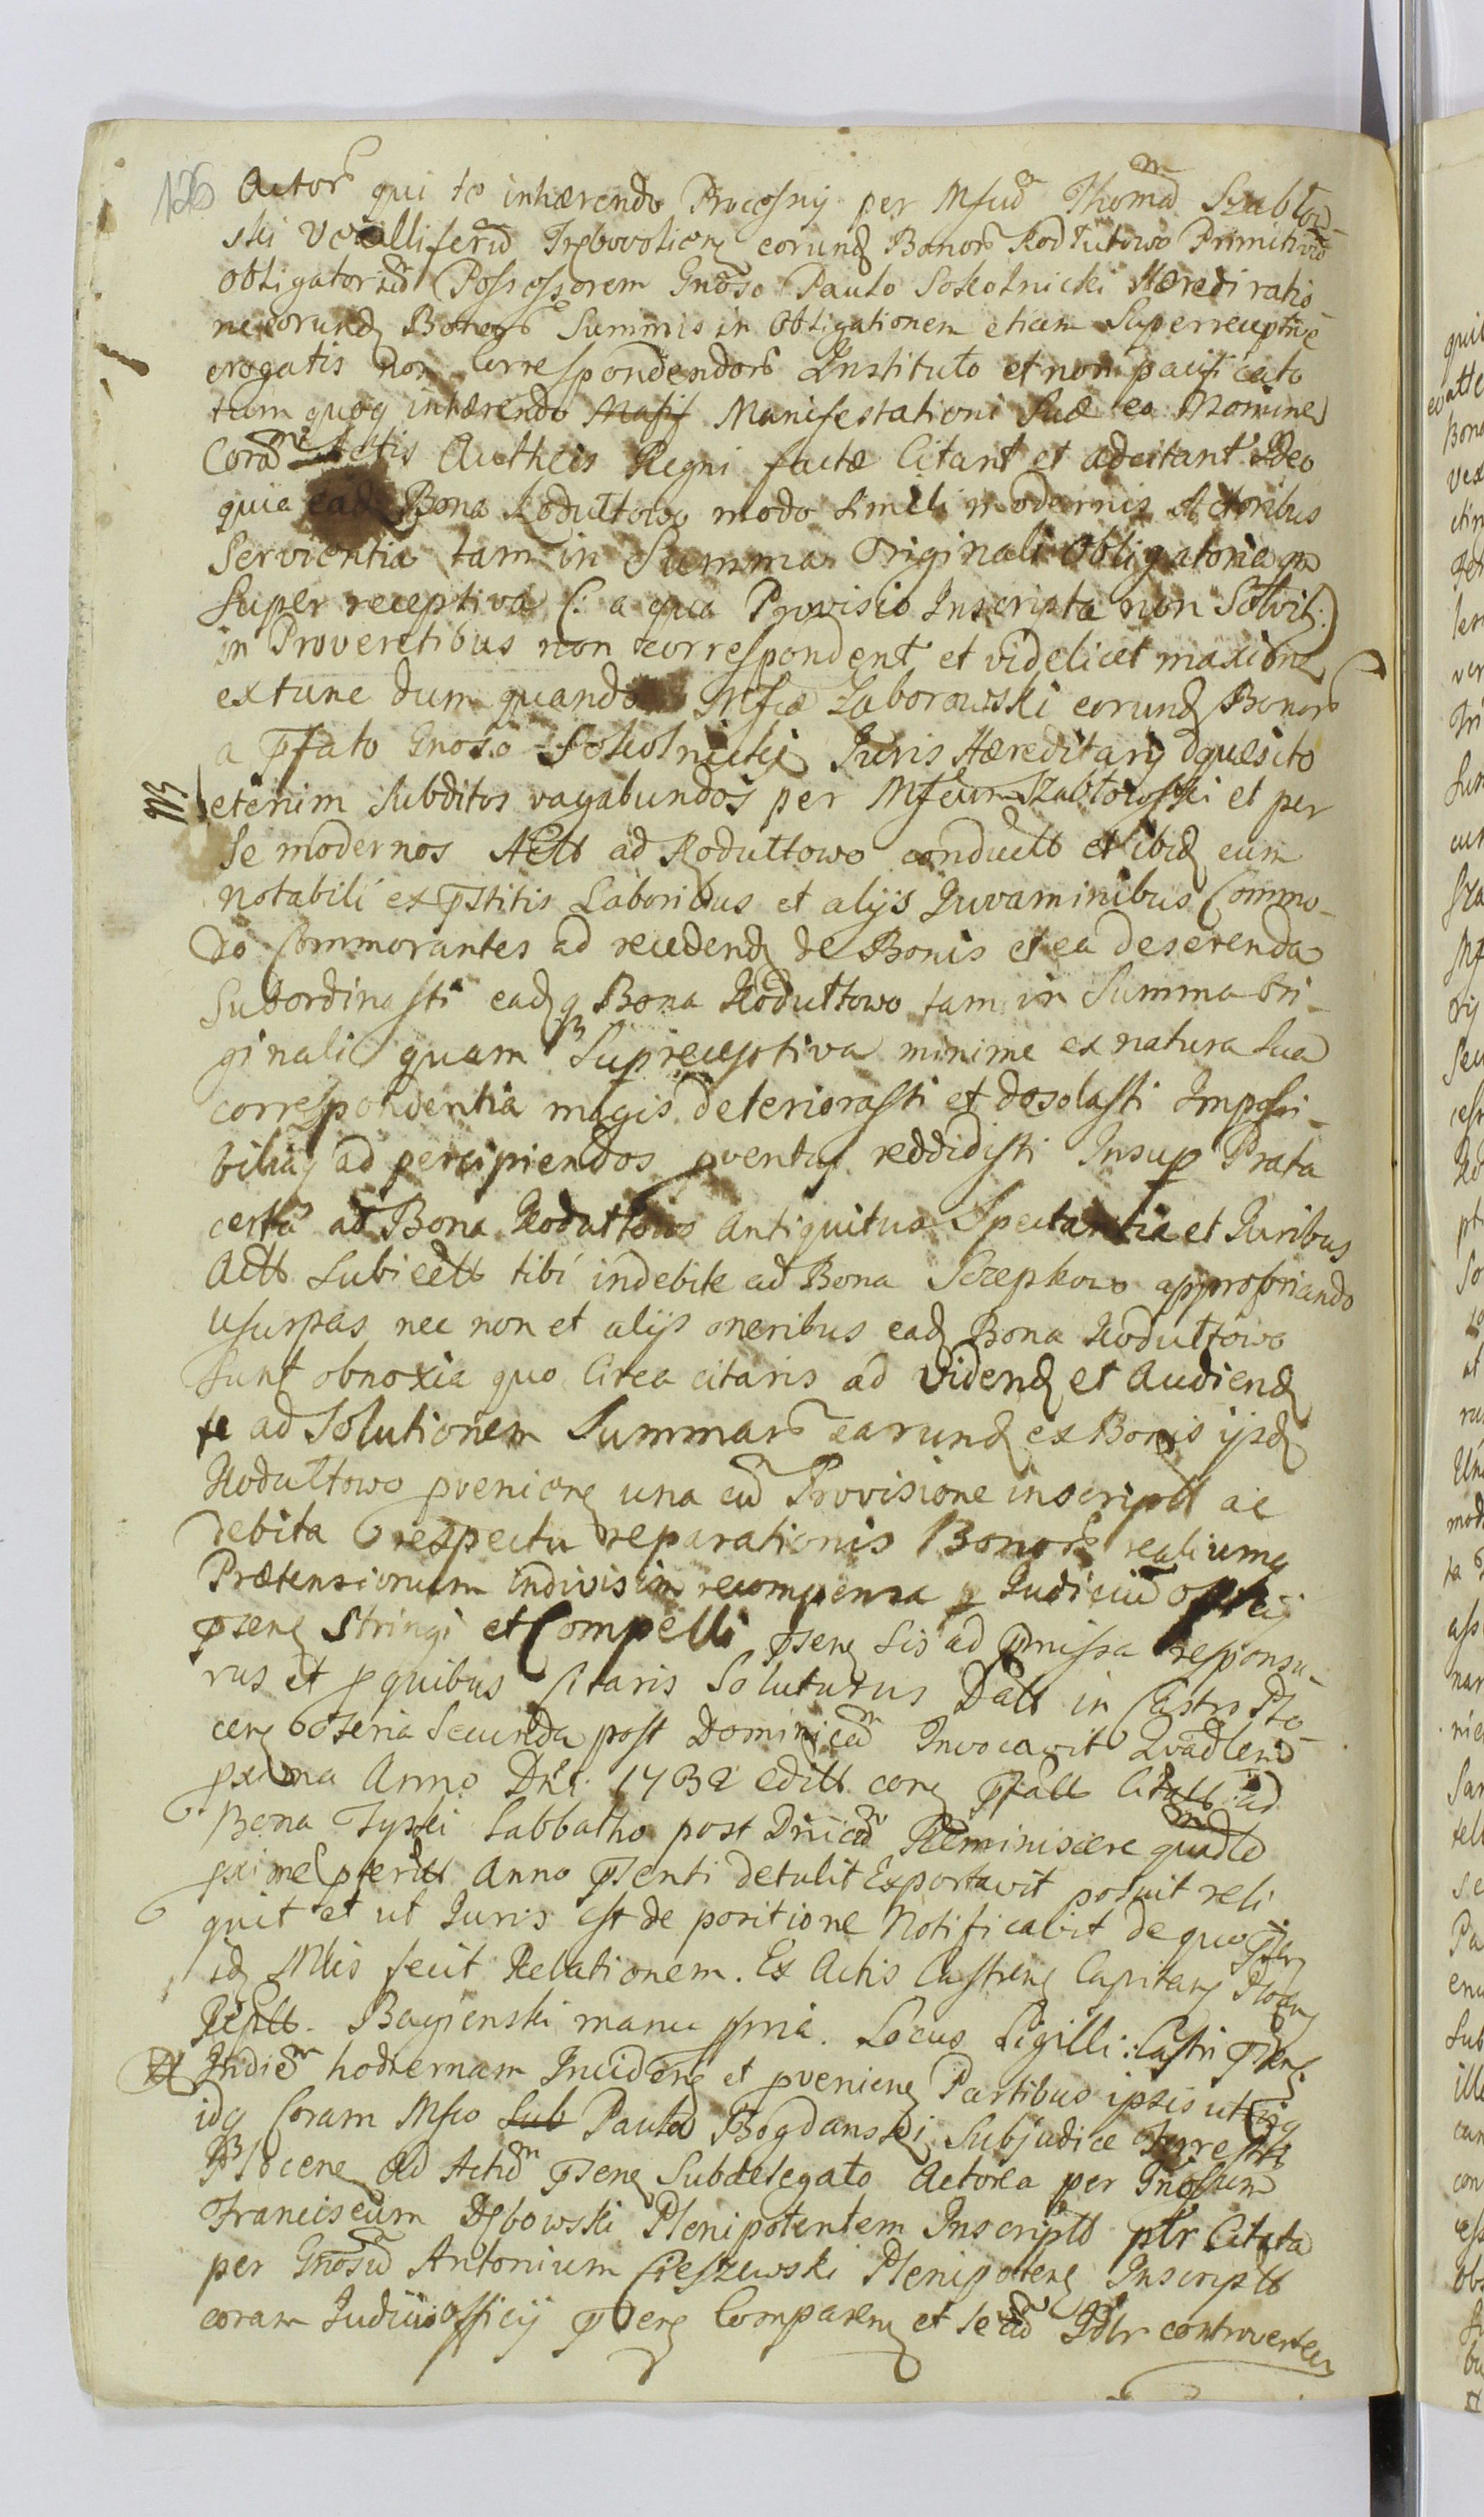 126 Actor qui te inhærendo Processuj per Mfcū Thomā Szabłow-
ski Vexilliferū Trębovoliens eorund Bonor Kodłutowo Primitivū
obligatoriū Possessorem Gnoso Paulo Sokolnicki Hæredi ratio
ne eorund Bonor Summis in Obligationem etiam Superreceptive
erogatis non Correspondendor Instituto et non pacificato
tum quoq inhærendo Manifestationi Suæ eo Nomine
Corā Actis Autheis Regni factæ Citant et adcitant Ideo
quia ead Bona Kodułtowo modo simili modernis Actoribus
Servientia tam in Summa Originali Obligatoria qm
Super receptiva (: a qua Provisio Inscripta non Solvit :)
in Proventibus non correspondent et videlicet maxime
extunc dum quando Mfcæ Zaborowski eorund Bonor
a Pfato Gnoso Sokolnicki Juris Hæreditarij Aquæsito
etenim Subditos vagabundos per Mfcum Szabłowski et per
Se modernos Actt ad Kodułtowo conductt et ibid cum
notabili ex Pstitis Laboribus et alijs Juvaminibus Commo-
do Commorantes ad recedend de Bonis et ea deserenda
Subordinasti eadq Bona Kodułtowo tam in Summa Ori-
ginali quam Supreceptiva minime ex natura sua
correspondentia magis deteriorasti et desolasti Impossi-
biliaq ad percipiendos pventus reddidisti Insup Prata
certa ad Bona Kodułtowo antiquitus Spectantia et Juribus
Actt Subiectt tibi indebite ad Bona Szczepkowo appropriando
usurpas nec non et alijs oneribus ead Bona Kodułtowo
sunt obnoxia quo Circa citaris ad Vidend et Audiend
te ad Solutionem Summar earund ex Bonis ijsd
Kodułtowo pveniens una cū Provisione inscriptt ac
debita respectu reparationis Bonor realiumq
Prætensionum indivisim recompensa p Judiciū officij
Psens Stringi et Compelli Psens sis ad Pmissa responsu-
rus et p quibus Citaris Soluturus Datt in Castro Plo-
cens Feria Secunda post Dominicā Invocavit Quadlem
pxima Anno Dni 1732 Editt cong Pfatt Citatt ad
Bona Tyski Sabbatho post Dnicā Reminiscere quadle
pxime pteritt Anno Psenti detulit Exportavit posuit reli
quit et ut Juris est de positione Notificavit de quo Pblr
idq Mlis fecit Relationem. Ex Actis Castrens Capitans Plocens
Reptt. Bagienski manu ppria. Locus Sigilli: Castri Psens
In diē hodiernam Inciden et pveniens Partibus ipsis utrisq
idq Coram Mfco Sub Paulo Bogdanski Subjudice Terrestri
Plocens ad Actū Psens Subdelegato Actorea per Gnosum
Franciscum Dębowski Plenipotentem Inscriptt ptr Citata
per Gnosū Antonium Cieszewski Plenipotens Inscriptt
coram Judicio officij Psens Comparen et se cū Pblr controverten